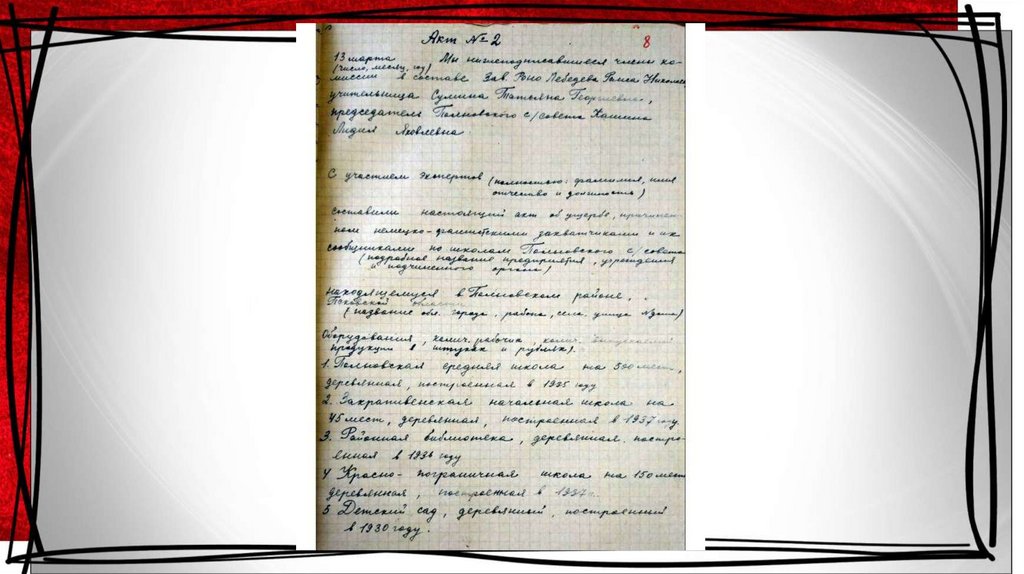 Акт № 2
8
13 марта Мы нижеподписавшиеся члены ко-
(число, месяц, год)
миссии в составе Зав Роно Лебедева Раиса Николаев
учительница Сумина Татьяна Георгиевна,
председатель Полновского с/совета Кашина
Лидия Яковлевна
С участием экспертов (полностью: фамилия, имя
отчество и должность)
составили настоящий акт об ущербе, причинен-
ном немецко-фашистскими захватчиками и их
сообщниками по школам Полновского с/совета
(подробное название предприятия, учреждения
и подчиненного органа)
находящемуся в Полновском районе,
Псковской области
(название обл. города, района, села, улица № дома)
Оборудования, колич. рабочих, колич. выпускаемой
продукции в штуках и рублях).
1. Полновская средняя школа на 500 мест,
деревянная, построенная в 1925 году
2. Закрапивенская начальная школа на
45 мест, деревянная, построенная в 1937 году
3. Районная библиотека, деревянная, постро-
енная в 1936 году
4 Красно-пограничная школа на 150 мест
деревянная, построенная в 1937г.
5 Детский сад, деревянный, построенный
в 1930 году.